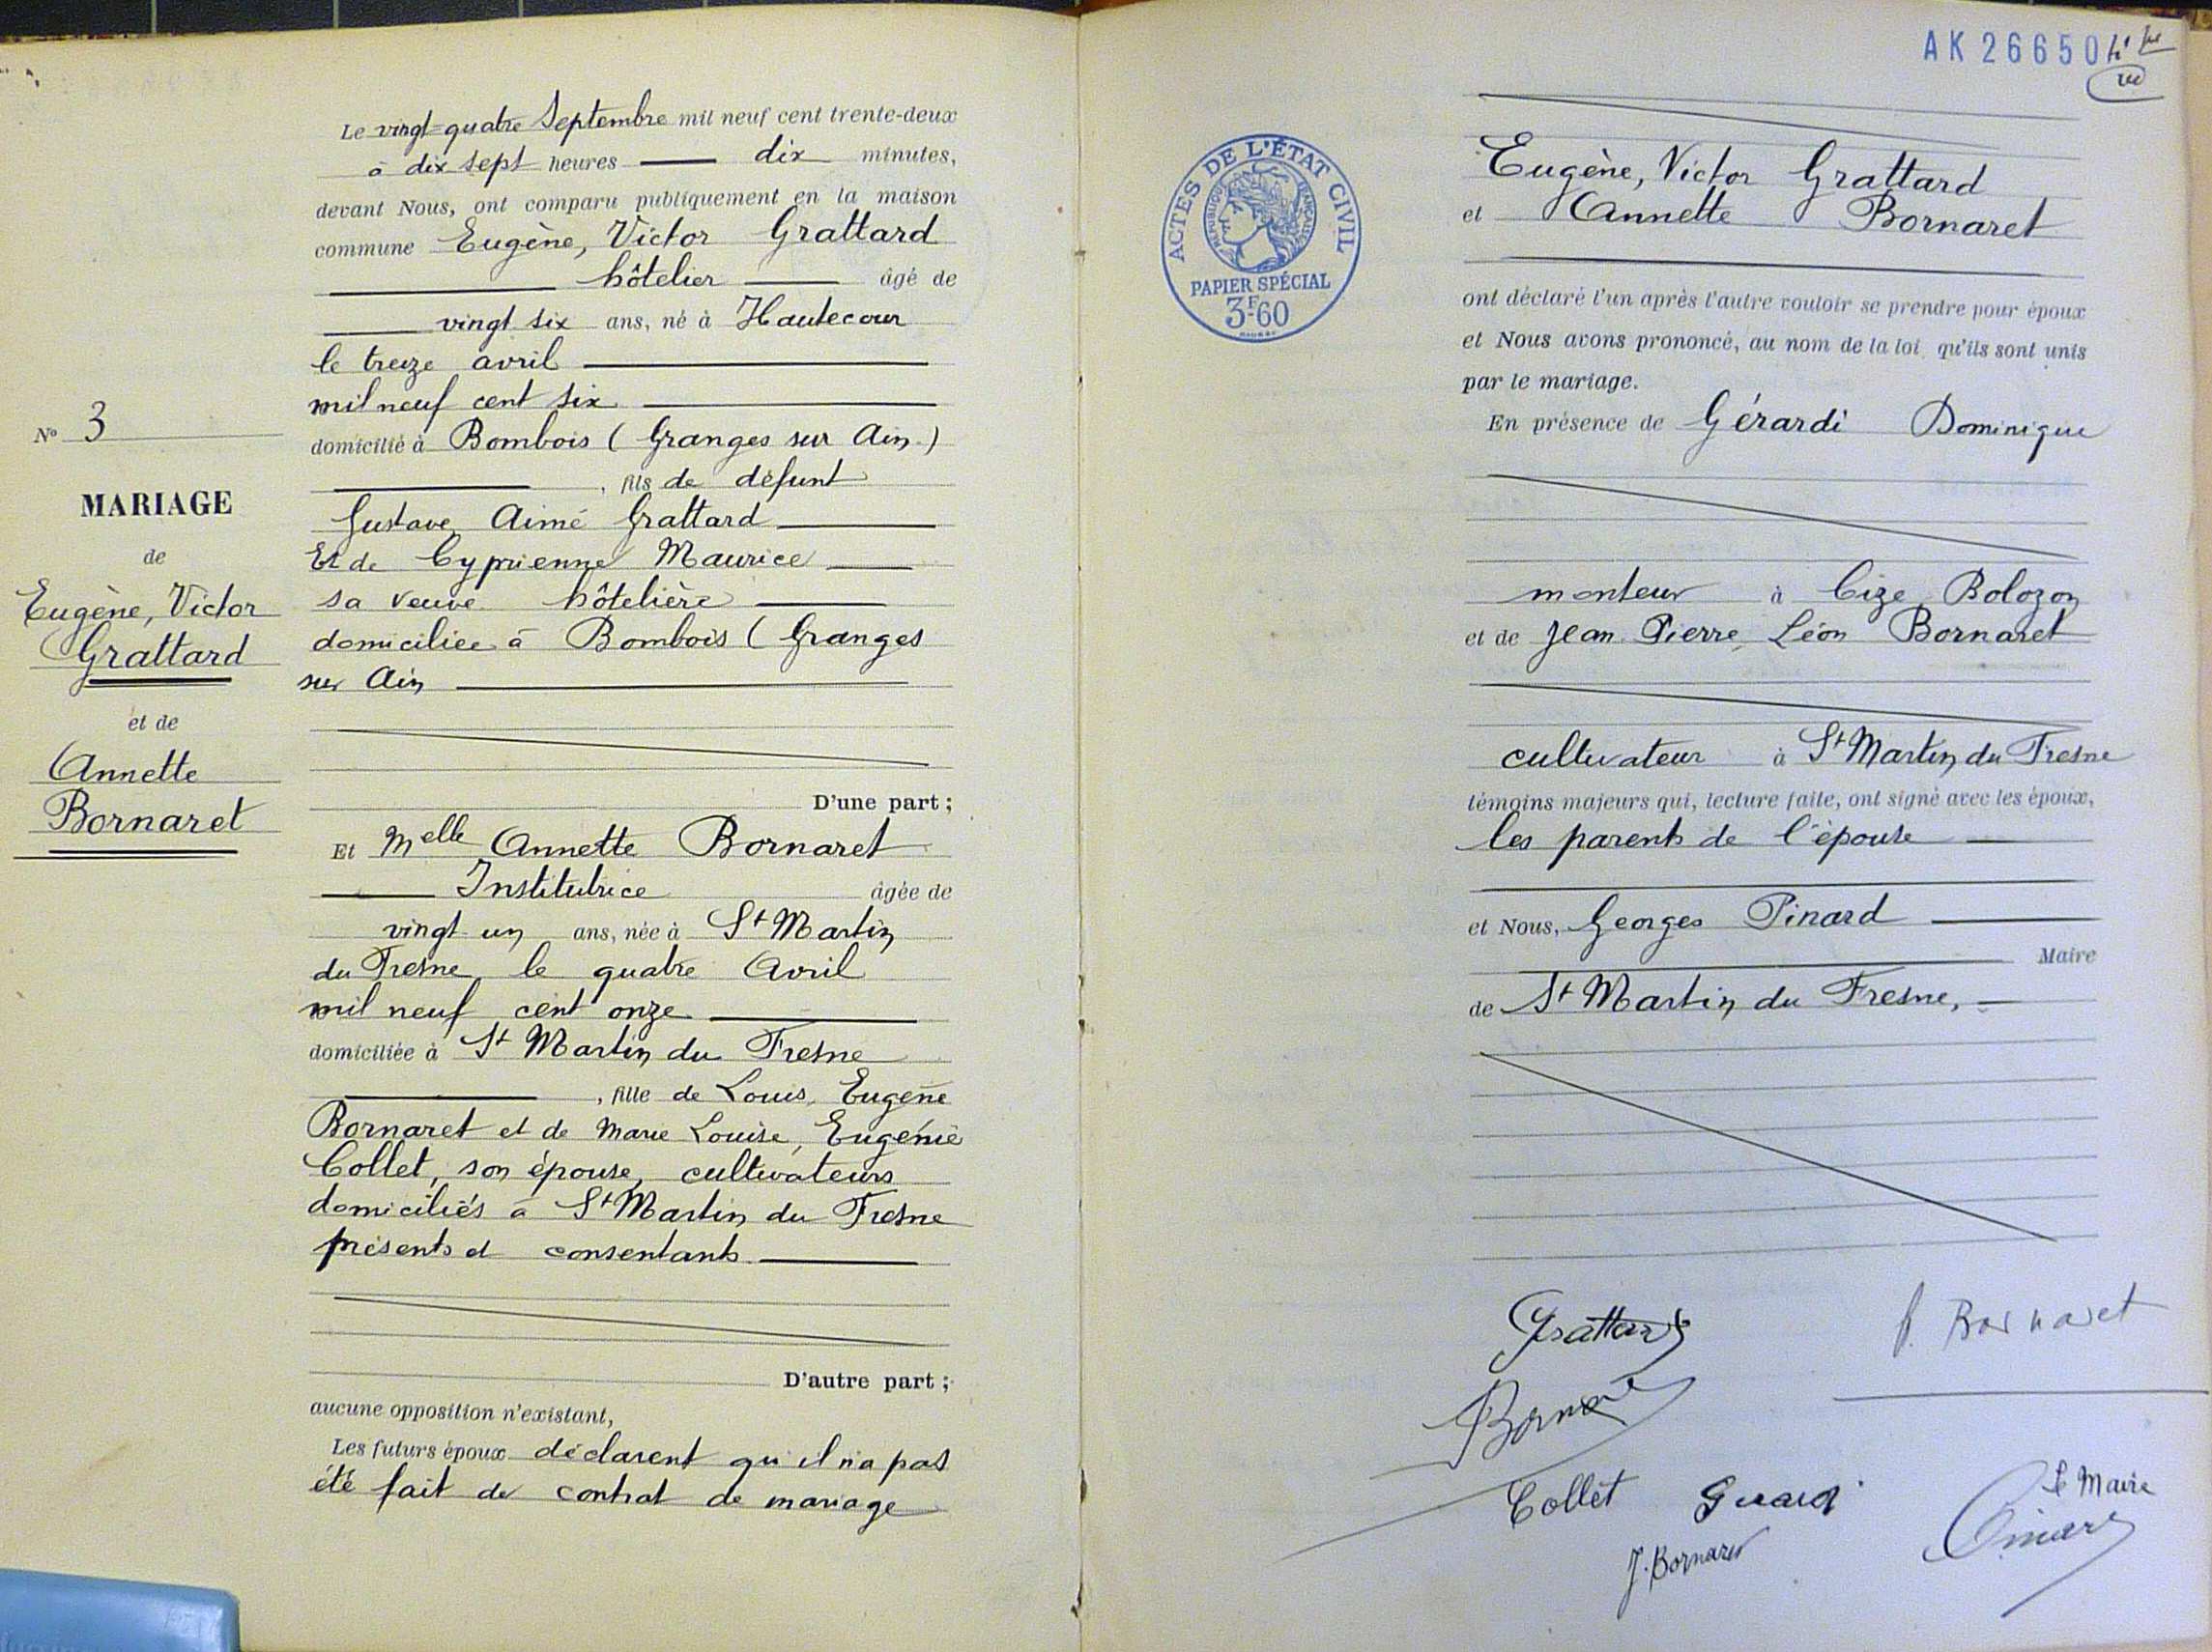 Le vingt-quatre Septembre mil neuf cent trente-deux
à dix sept heures dix minutes,
devant Nous, ont comparu publiquement en la maison
commune Eugène, Victor Grattard
hôtelier âgé de
vingt six ans, né à Hautecour
le treize avril
mil neuf cent six
domicilié à Bombois ( Granges sur Ain.)
, fils de défunt
Gustave, Aimé Grattard
Et de Cyprienne Maurice
sa veuve hôtelière
domiciliée à Bombois ( Granges
sur Ain
D'une part ;
Et Melle Annette Bornaret
Institutrice âgée de
vingt un ans, née à St Martin
du Fresne le quatre Avril
mil neuf cent onze
domiciliée à St Martin du Fresne
, fille de Louis, Eugène
Bornaret et de Marie Louise, Eugénie
Collet, son épouse, cultivateurs
domiciliés à St Martin du Fresne
présents et consentants
D'autre part ;
aucune opposition n'existant,
Les futurs époux déclarent qu'il n'a pas
été fait de contrat de mariage
No 3
MARIAGE
de
Eugène, Victor
Grattard
et de
Annette
Bornaret
AK 26650
ACTES DE L'ÉTAT CIVIL
RÉPUBLIQUE FRANÇAISE
PAPIER SPÉCIAL
3F60
Eugène, Victor Grattard
et Annette Bornaret
ont déclaré l'un après l'autre vouloir se prendre pour époux
et Nous avons prononcé, au nom de la loi qu'ils sont unis
par le mariage.
En présence de Gérardi Dominique
monteur à Cize Bolozon
et de Jean Pierre, Léon Bornaret
cultivateur à St Martin du Fresne
témoins majeurs qui, lecture faite, ont signé avec les époux,
les parents de l'épouse
et Nous, Georges Pinard
Maire
de St Martin du Fresne,
Grattard
Bornaret
Bornaret
Collet Gerardi
J. Bornaret
Le Maire
Pinard